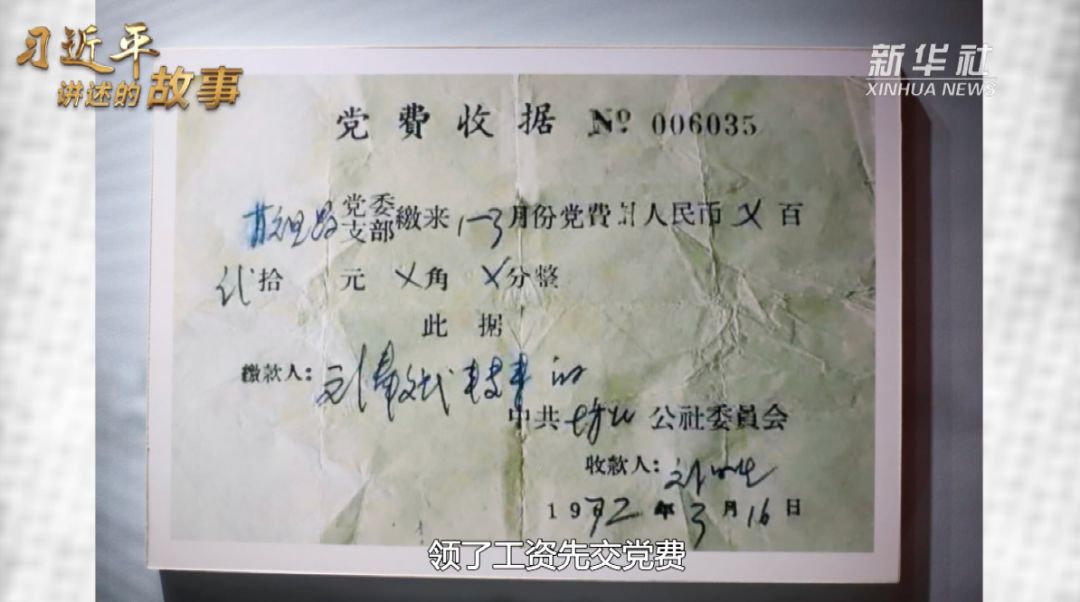 习近平
讲述的故事
新华社
XINHUA NEWS
党费收据 Nº 006035
党委支部缴来1-3月份党费计人民币 X百
拾 元 X角 X分整
此据
缴款人: 刘 的
中共 公社委員会
收款人: 刘
1972年3月16日
领了工资先交党费